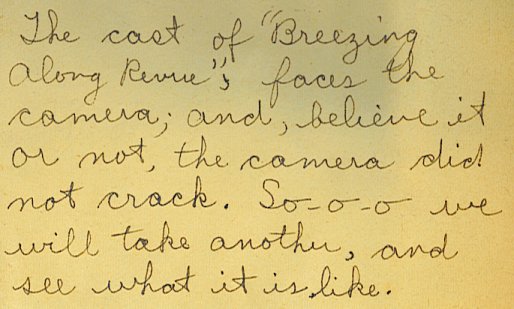 The cast of "Breezing
Along Revue", faces the
camera; and, believe it
or not, the camera did
not crack. So-o-o we
will take another, and
see what it is like.